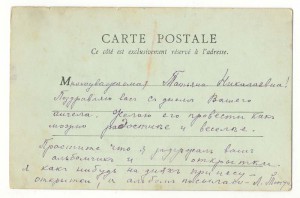 CARTE POSTALE
Ce côté est exclusivement réservé à l'adresse.
Многоуважаемая Татьяна Николаевна!
Поздравляю вас с днемъ Вашего
Ангела. Желаю его провести какъ
можно радостнѣе и веселѣе.
Простите что я задержалъ вашъ
альбомчикъ и открытки
я какъ нибудь на дняхъ принесу
открытки, а альбомъ